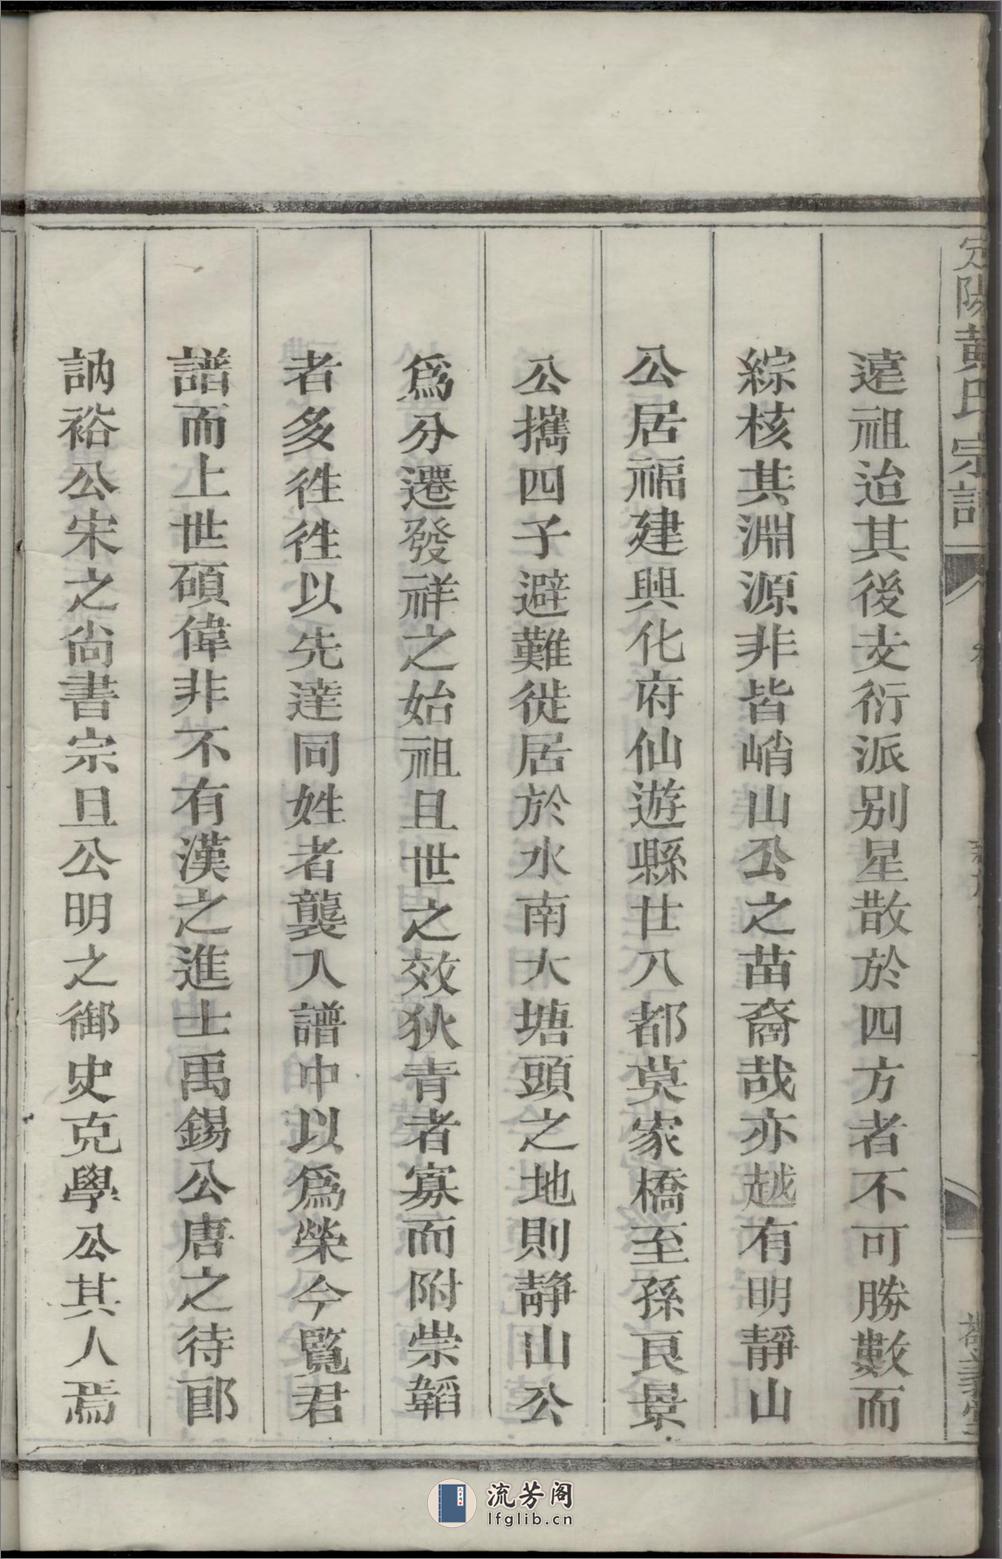 定陽黃氏宗譜
遠祖迨其後支衍派别星散於四方者不可勝數而
綜核其淵源非皆峭山公之苗裔哉亦越有明靜山
公居福建興化府仙遊縣廿八都莫家橋至孫良景
公攜四子避難徙居於水南大塘頭之地則靜山公
爲分遷發祥之始祖且世之效狄青者寡而附崇韜
者多徃徃以先達同姓者襲入譜中以爲榮今覽君
譜而上世碩偉非不有漢之進士禹錫公唐之待郎
訥裕公宋之尚書宗旦公明之御史克學公其人焉
流芳阁
lfglib.cn